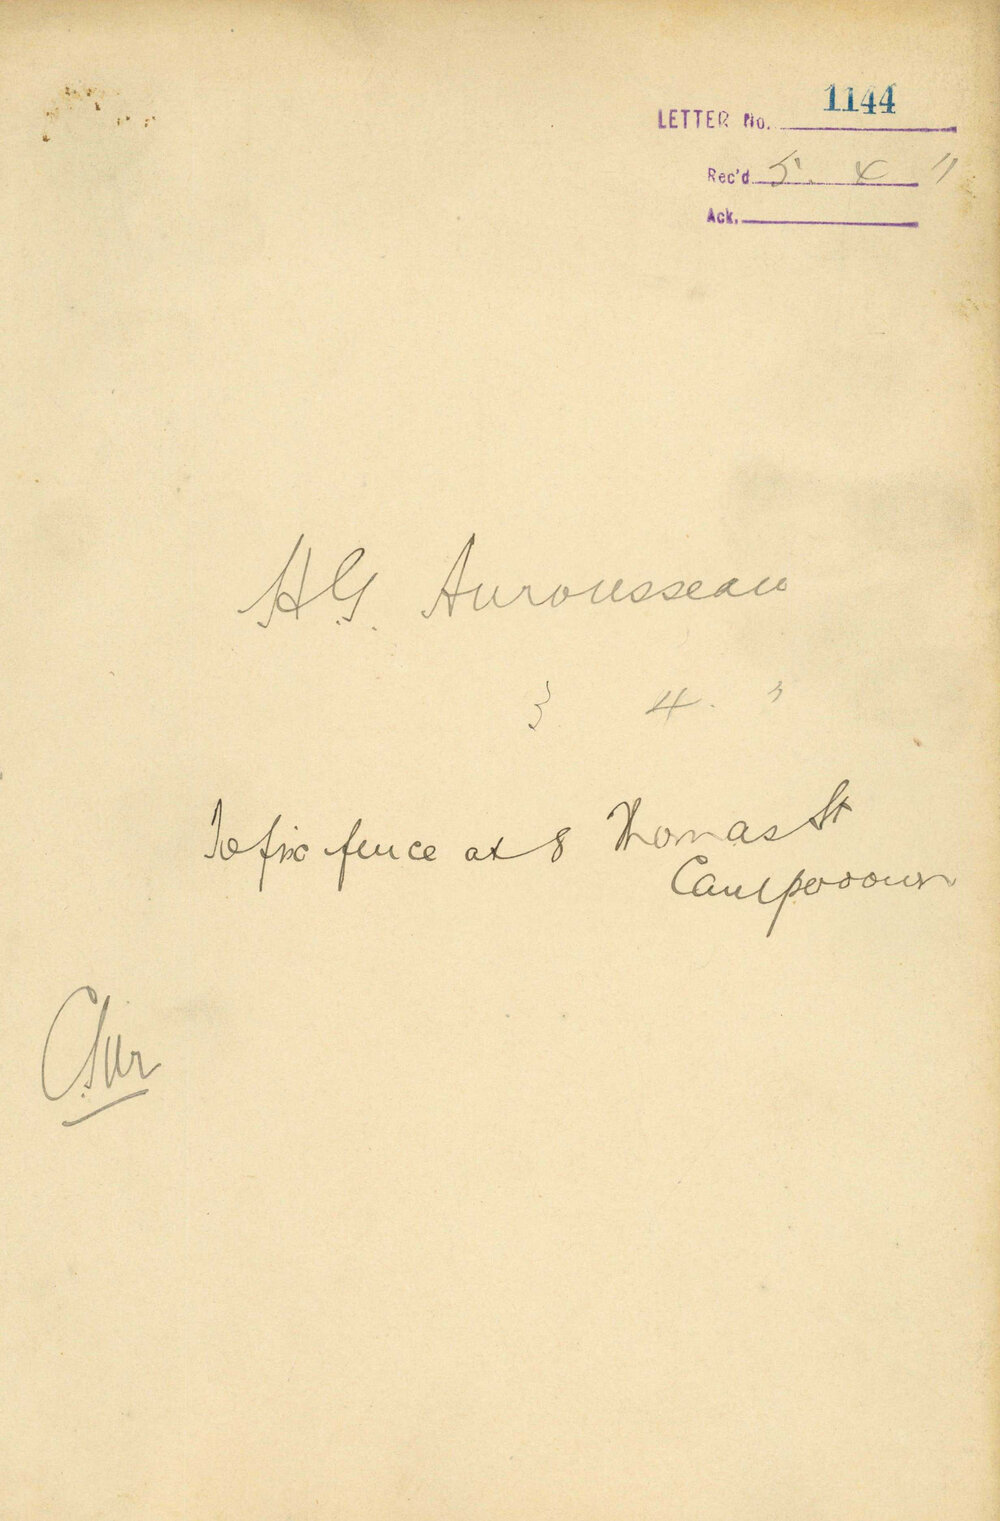 LETTER No. 1144
Rec'd 5. 4 "
Ack.
H.G. Aurousseau
3 4. "
To fix fence at 8 Thomas St
Camperdown
C.Sur